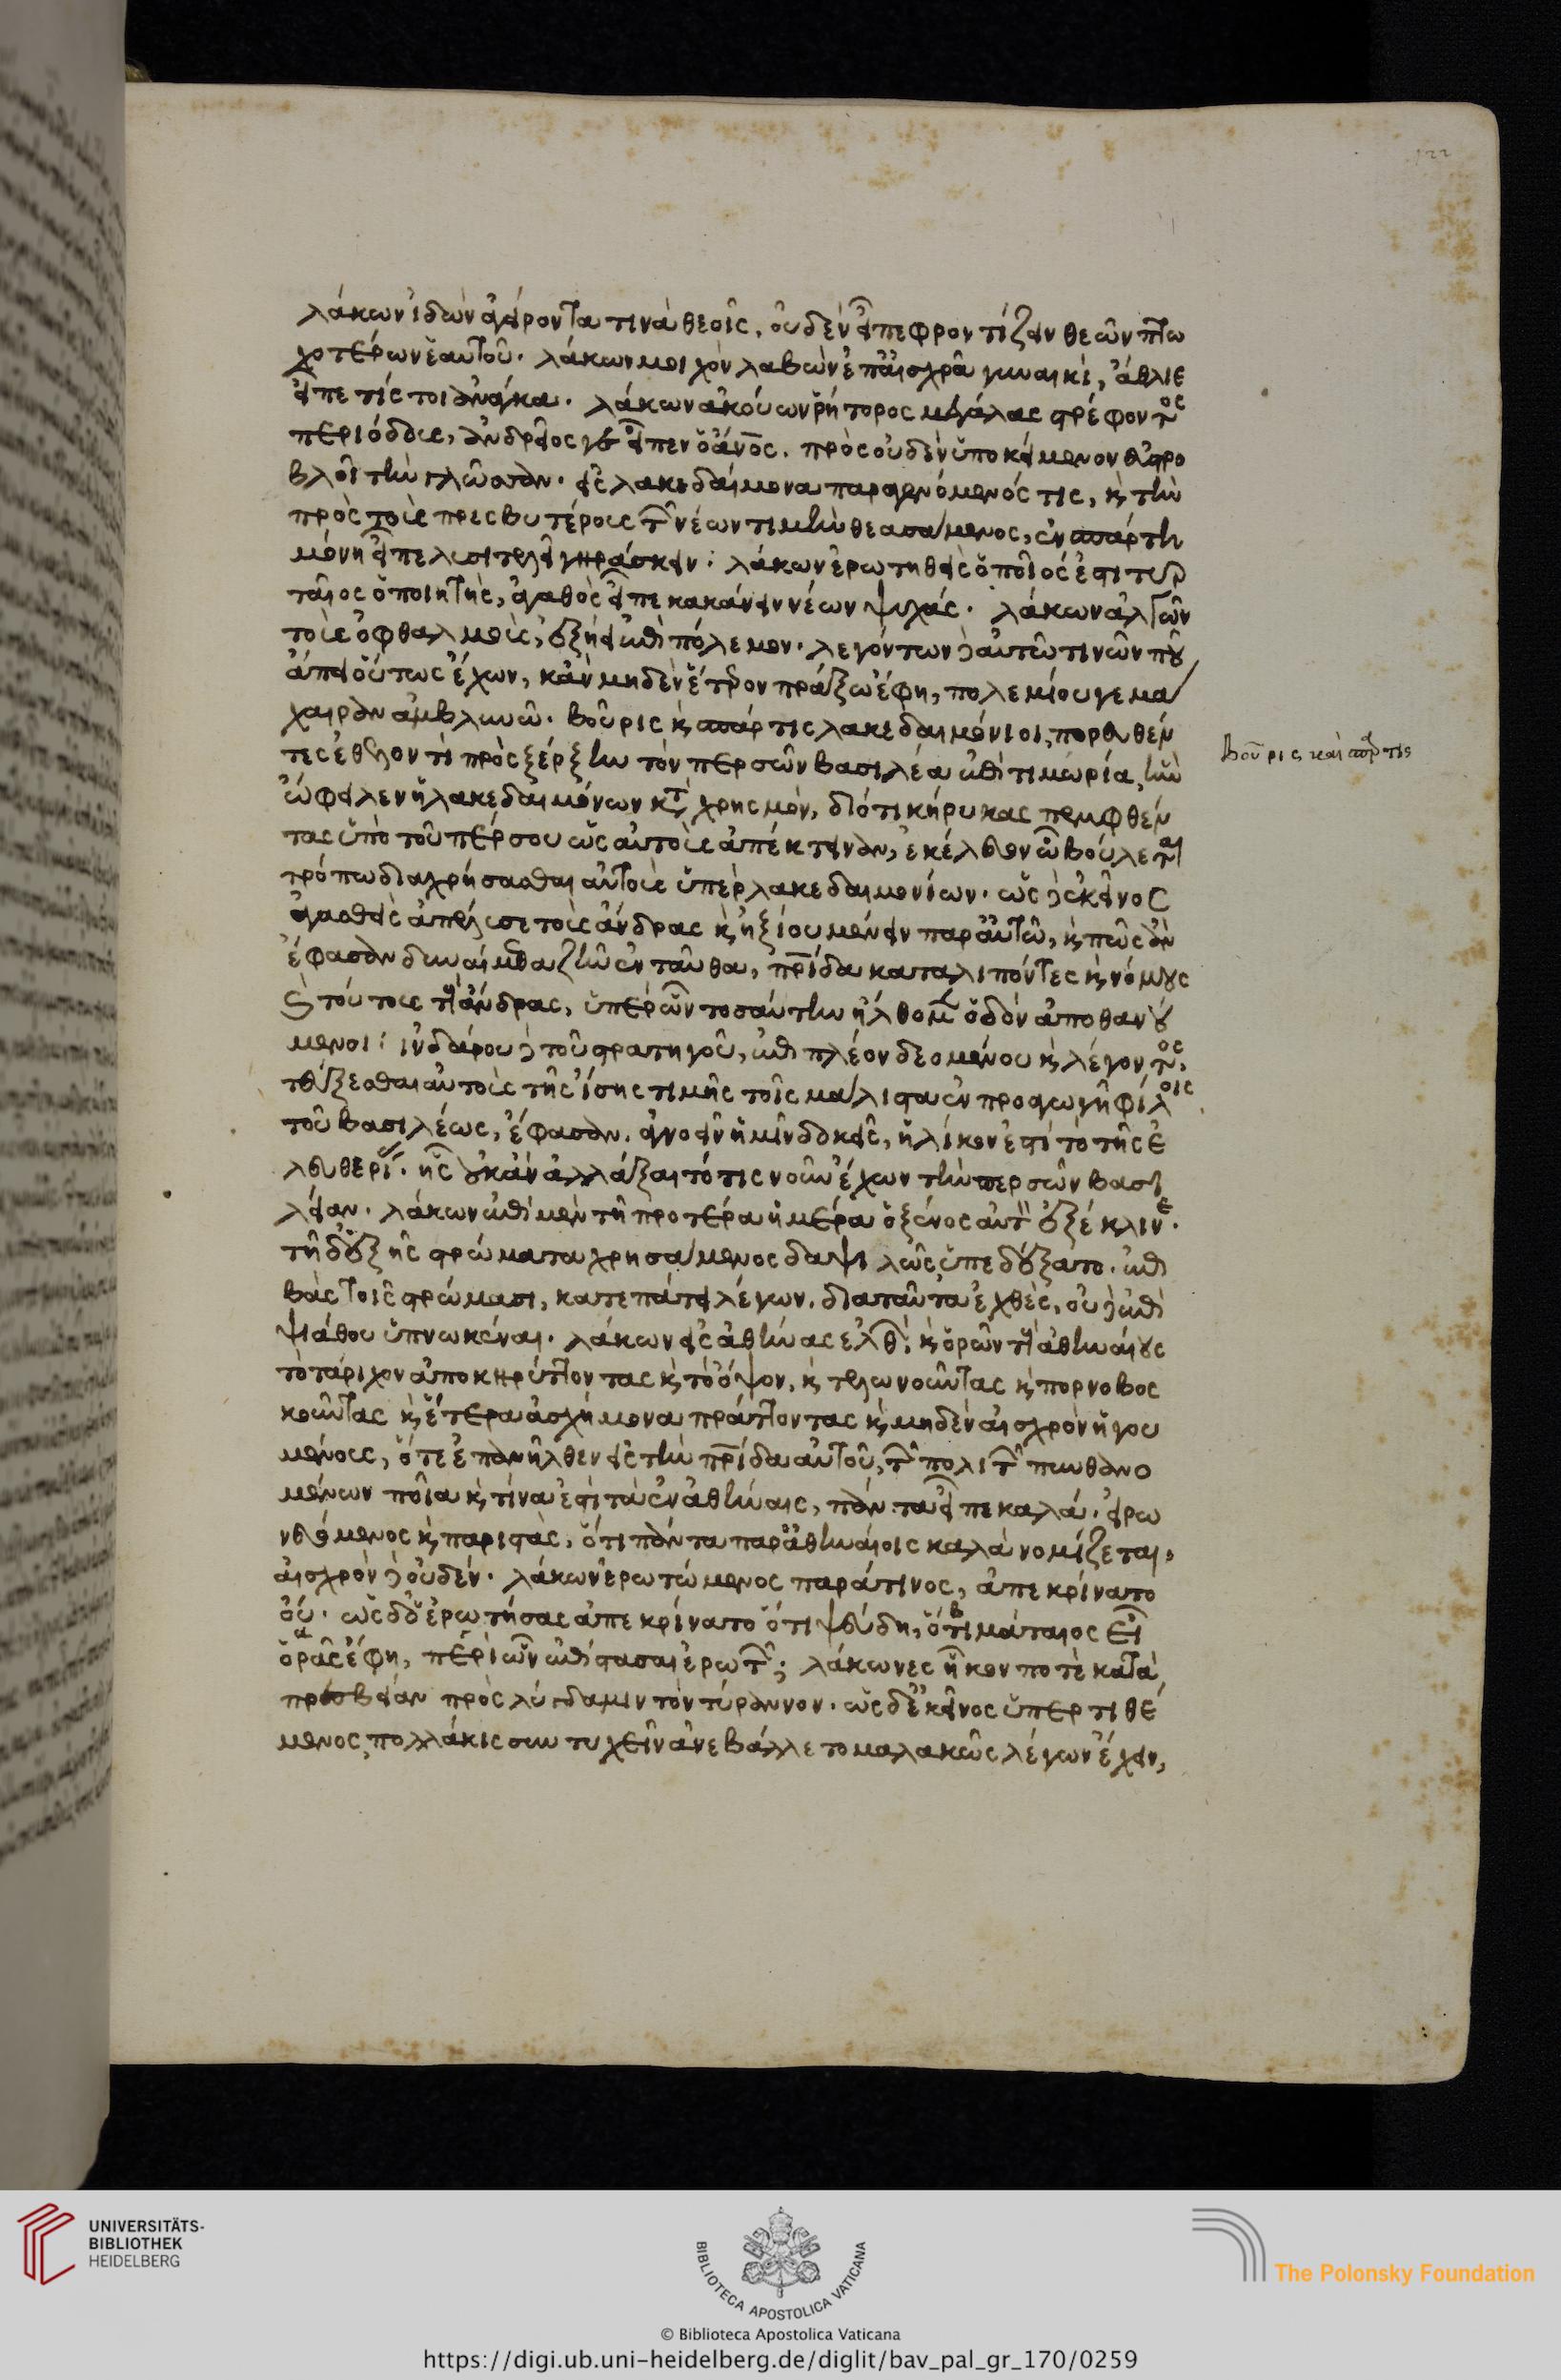 λάκων ἰδὼν ἀγείροντα τινὰ θεοῖς, οὐδὲν εἶπε φροντίζειν θεῶν πτω
χοτέρων ἑαυτοῦ. λάκων μοιχὸν λαβὼν ἐπ' αἰσχρᾶ γυναικὶ, ἄθλιε
εἶπε τίς τοι ἀνάγκα. λάκων ἀκούων ῥήτορος μεγάλας στρέφοντος
περιόδους, ἀνδρεῖος γε εἶπεν ὁ ἄνος. πρὸς οὐδὲν ὑποκείμενον εὖ στρο
βλοῖ τὴν γλῶσσαν. εἰς λακεδαίμονα παραγενόμενός τις, καὶ τὴν
πρὸς τοὺς πρεσβυτέρους τῶν νέων τιμὴν θεασάμενος, ἐν σπάρτη
μόνη εἶπε λυσιτελεῖ γηράσκειν. λάκων ἐρωτηθεὶς ὁποῖός ἐστι τυρ
ταῖος ὁ ποιητὴς, ἀγαθὸς εἶπε κακάνειν νέων ψυχάς. λάκων ἀλγῶν
τοὺς ὀφθαλμοὺς, ἐξήει ἐπὶ πόλεμον. λεγόντων δὲ αὐτῶ τινῶν ποῦ
ἄπει οὕτως ἔχων, κἂν μηδὲν ἕτερον πράξω ἔφη, πολεμίου γε μά
χαιραν ἀμβλυνῶ. βοῦρις καὶ σπάρτις λακεδαιμόνιοι, πορευθέν
τες ἐθελονταὶ πρὸς ξέρξην τὸν περσῶν βασιλέα ἐπὶ τιμωρία, ἣν
ὤφειλεν ἡ λακεδαιμόνων κατὰ χρησμὸν, διότι κήρυκας πεμφθέν
τας ὑπὸ τοῦ πέρσου ὡς αὐτοὺς ἀπέκτειναν, ἐκέλευον ᾧ βούλεται
τρόπω διαχρήσασθαι αὐτοὺς ὑπὲρ λακεδαιμονίων. ὡς δὲ ἐκεῖνος
ἀγασθεὶς ἀπέλυσε τοὺς ἄνδρας καὶ ἠξίου μένειν παρ' αὐτῶ, καὶ πῶς ἂν
ἔφασαν δυναίμεθα ζῆν ἐνταῦθα, πρίδα καταλιπόντες καὶ νόμους
καὶ τούτους τοὺς ἄνδρας, ὑπὲρ ὧν τοσαύτην ἤλθομεν ὁδὸν ἀποθανού
μενοι. ἰνδάρου δὲ τοῦ στρατηγοῦ, ἐπὶ πλέον δεομένου καὶ λέγοντος,
τεύξεσθαι αὐτοὺς τῆς ἴσης τιμῆς τοῖς μάλιστα ἐν προαγωγῆ φίλοις
τοῦ βασιλέως, ἔφασαν, ἀγνοεῖν ἡμῖν δοκεῖς, ἡλίκον ἐστὶ τὸ τῆς ἐ
λευθερίας. ἧς οὐκ ἂν ἀλλάξαιτό τις νοῦν ἔχων τὴν περσῶν βασι
λείαν. λάκων ἐπεὶ μὲν τῆ προτέρα ἡμέρα ὁ ξένος αὐτὸν ἐξέκλινε.
τῆ δ' ἑξῆς στρώματα χρησάμενος δαψιλῶς ὑπεδέξατο. ἐπι
βὰς τοῖς στρώμασι, κατεπάτει λέγων. διὰ ταῦτα ἐχθὲς, οὐδὲ ἐπὶ
ψιάθου ὑπνωκέναι. λάκων εἰς ἀθήνας ἐλθὼν, καὶ ὁρῶν τοὺς ἀθηναίους
τὸ τάριχον ἀποκηρύττοντας καὶ τὸ ὄψον, καὶ τελωνοῦντας καὶ πορνοβος
κοῦντας καὶ ἕτερα ἀσχήμονα πράττοντας καὶ μηδὲν αἰσχρὸν ἡγου
μένους, ὅτε ἐπανῆλθεν εἰς τὴν πρίδα αὐτοῦ, τῶν πολιτῶν πυνθανο
μένων ποῖα καὶ τίνα ἐστὶ τὰ ἐν ἀθήναις, πάντα εἶπε καλά. εἰρω
νευόμενος καὶ παριστὰς, ὅτι πάντα παρ' ἀθηναίοις καλὰ νομίζεται,
αἰσχρὸν δὲ οὐδέν. λάκων ἐρωτώμενος παρά τινος, ἀπεκρίνατο
οὔ. ὡς δ' ὁ ἐρωτήσας ἀπεκρίνατο ὅτι ψεύδη, ὅτι μάταιος εἶ
ὁρᾶς ἔφη, περὶ ὧν ἐπίστασαι ἐρωτῶν; λάκωνες ἧκον ποτὲ κατὰ
πρεσβείαν πρὸς λύγδαμιν τὸν τύραννον. ὡς δ' ἐκεῖνος ὑπερτιθέ
μενος, πολλάκις συντυχεῖν ἀνεβάλλετο μαλακῶς λέγων ἔχειν,
βοῦρις καὶ σπάρτις
122
UNIVERSITÄTS-
BIBLIOTHEK
HEIDELBERG
BIBLIOTECA APOSTOLICA VATICANA
The Polonsky Foundation
© Biblioteca Apostolica Vaticana
https://digi.ub.uni-heidelberg.de/diglit/bav_pal_gr_170/0259